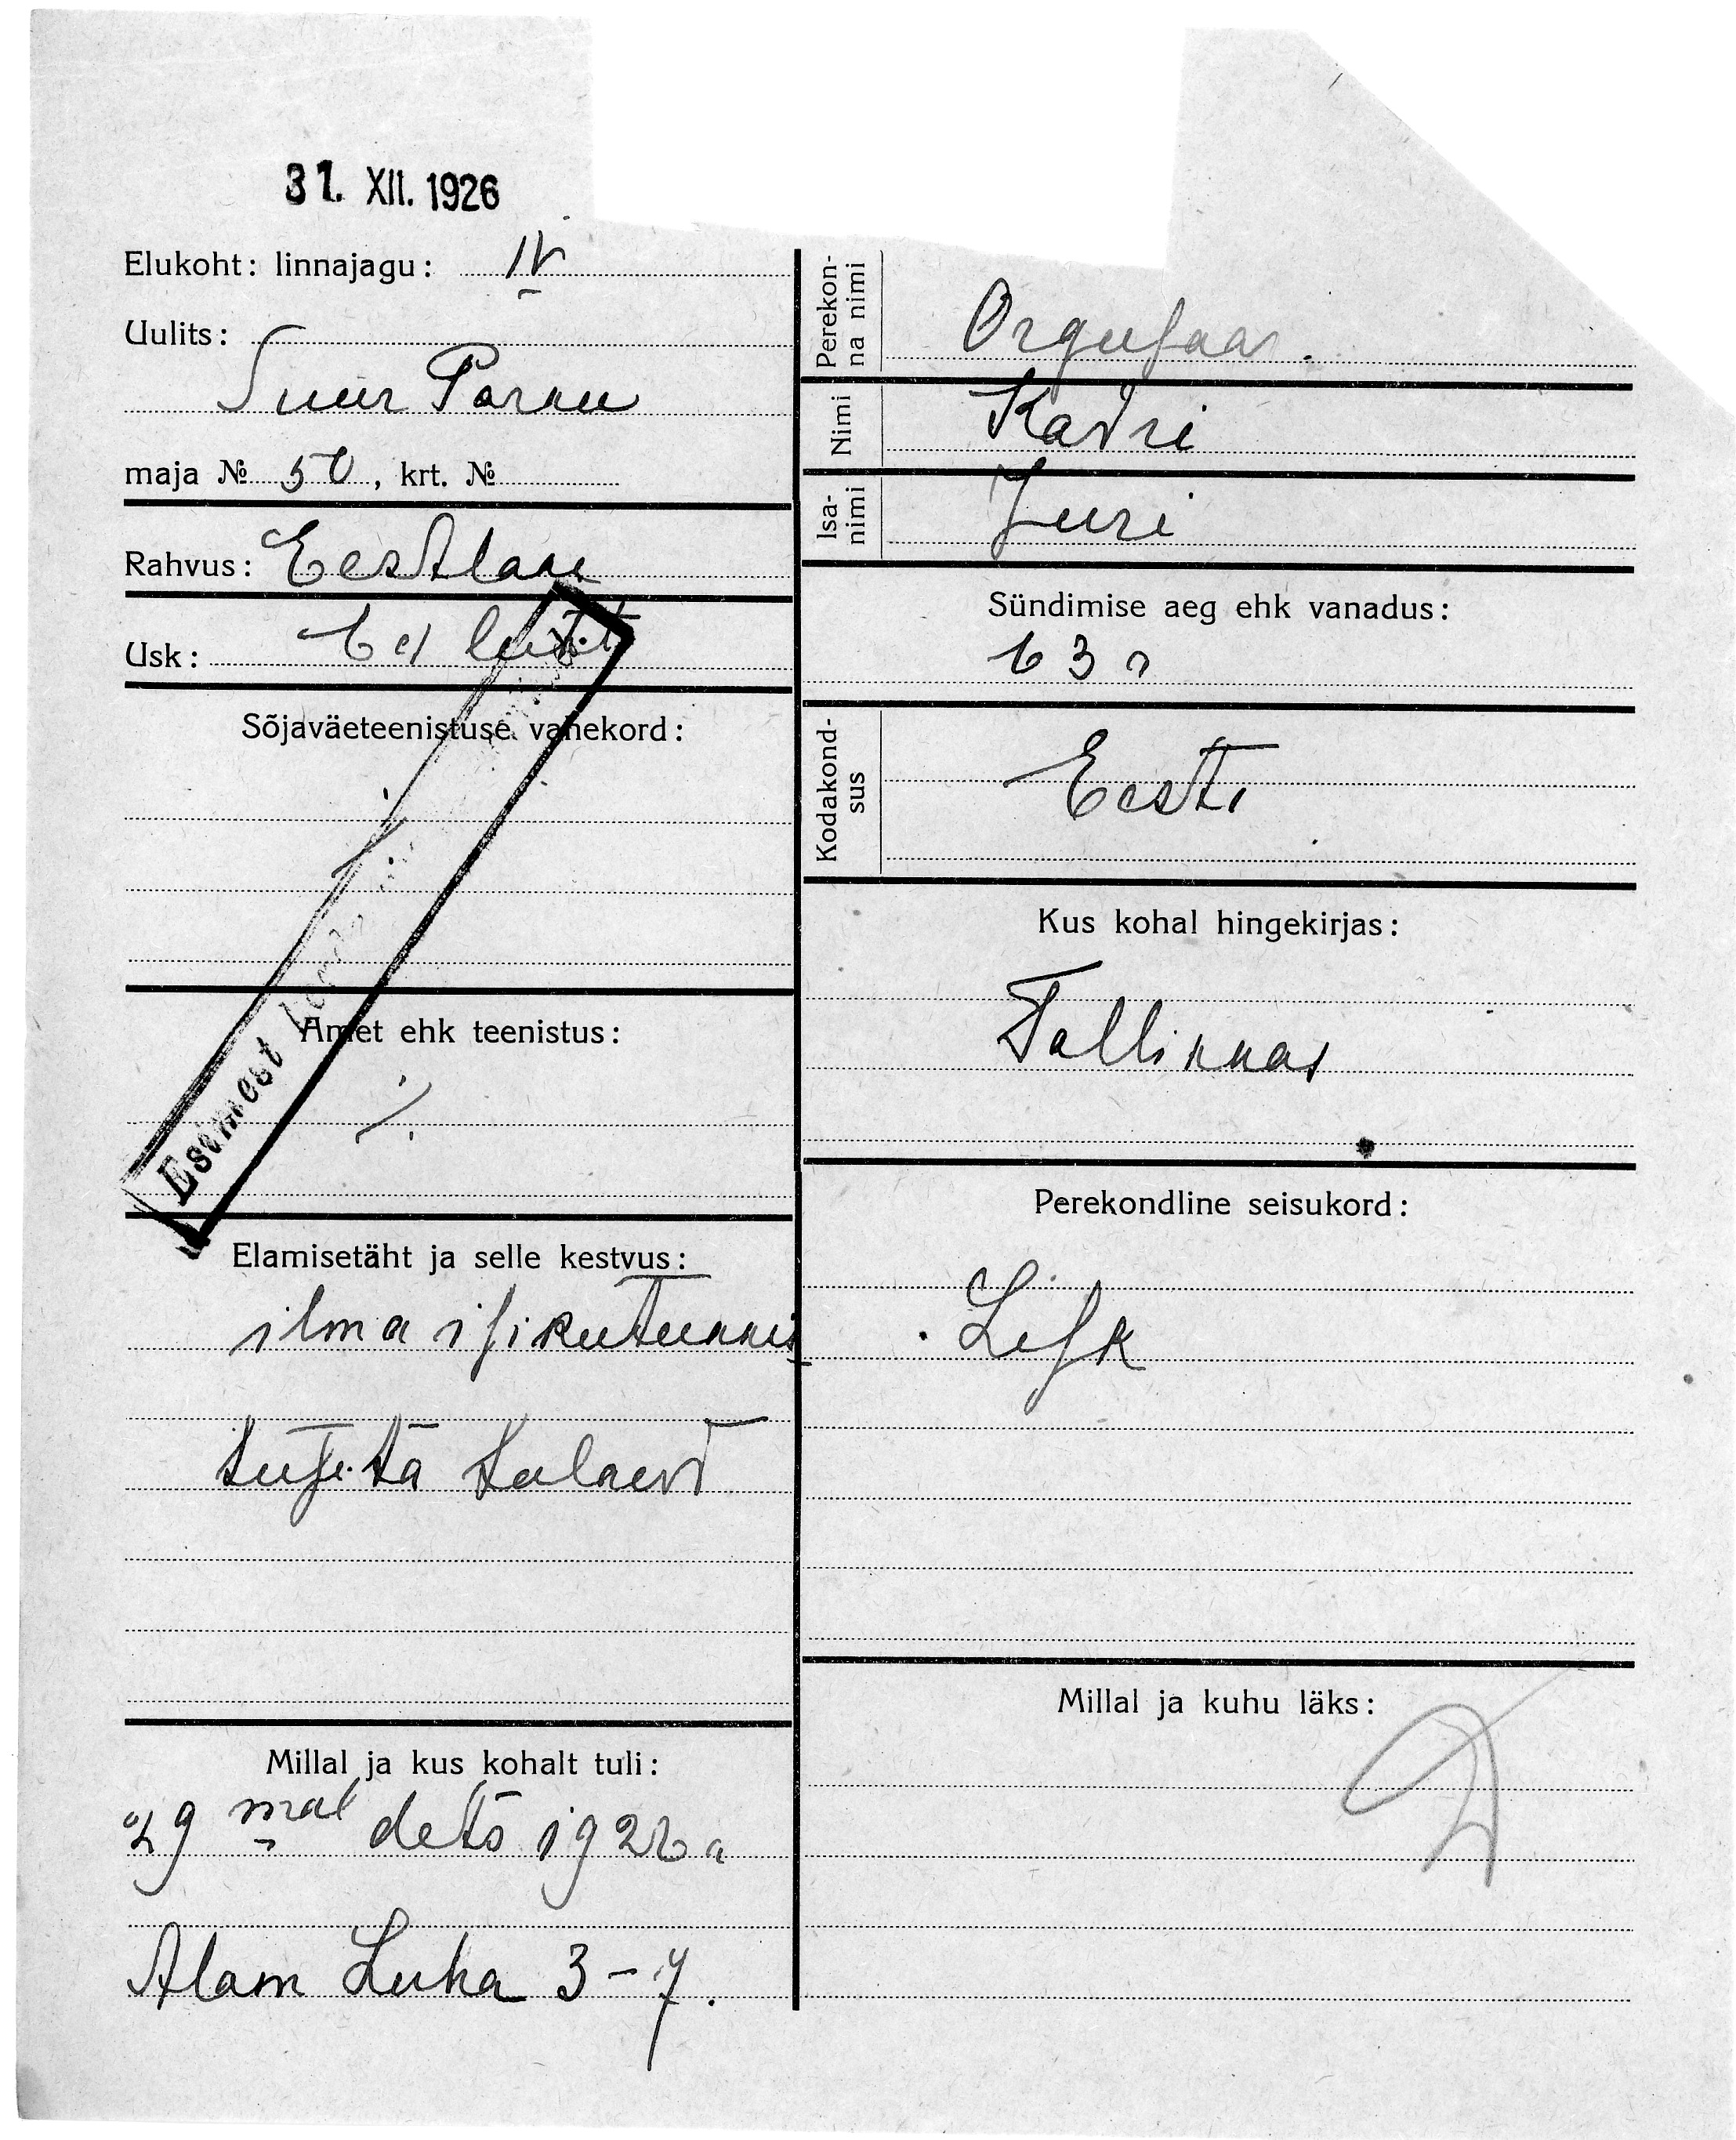 31. XII. 1926
Elukoht: linnajagu: IV
Uulits:
Suur Parnu
maja № 50, krt. №
Rahvus: Eestlane
Usk: Ev lut.
Sõjaväeteenistuse vahekord:
Amet ehk teenistus:
Esimest korda
Elamisetäht ja selle kestvus:
ilma isikutunnis
tuseta
Millal ja kus kohalt tuli:
29 mal dets 1926 a
Alam Luha 3-7.
Perekonna nimi
Orgusaar.
Nimi Kadri
Isanimi Juri
Sündimise aeg ehk vanadus:
63 a
Kodakondsus
Eesti
Kus kohal hingekirjas:
Tallinnas
Perekondline seisukord:
Lesk
Millal ja kuhu läks: